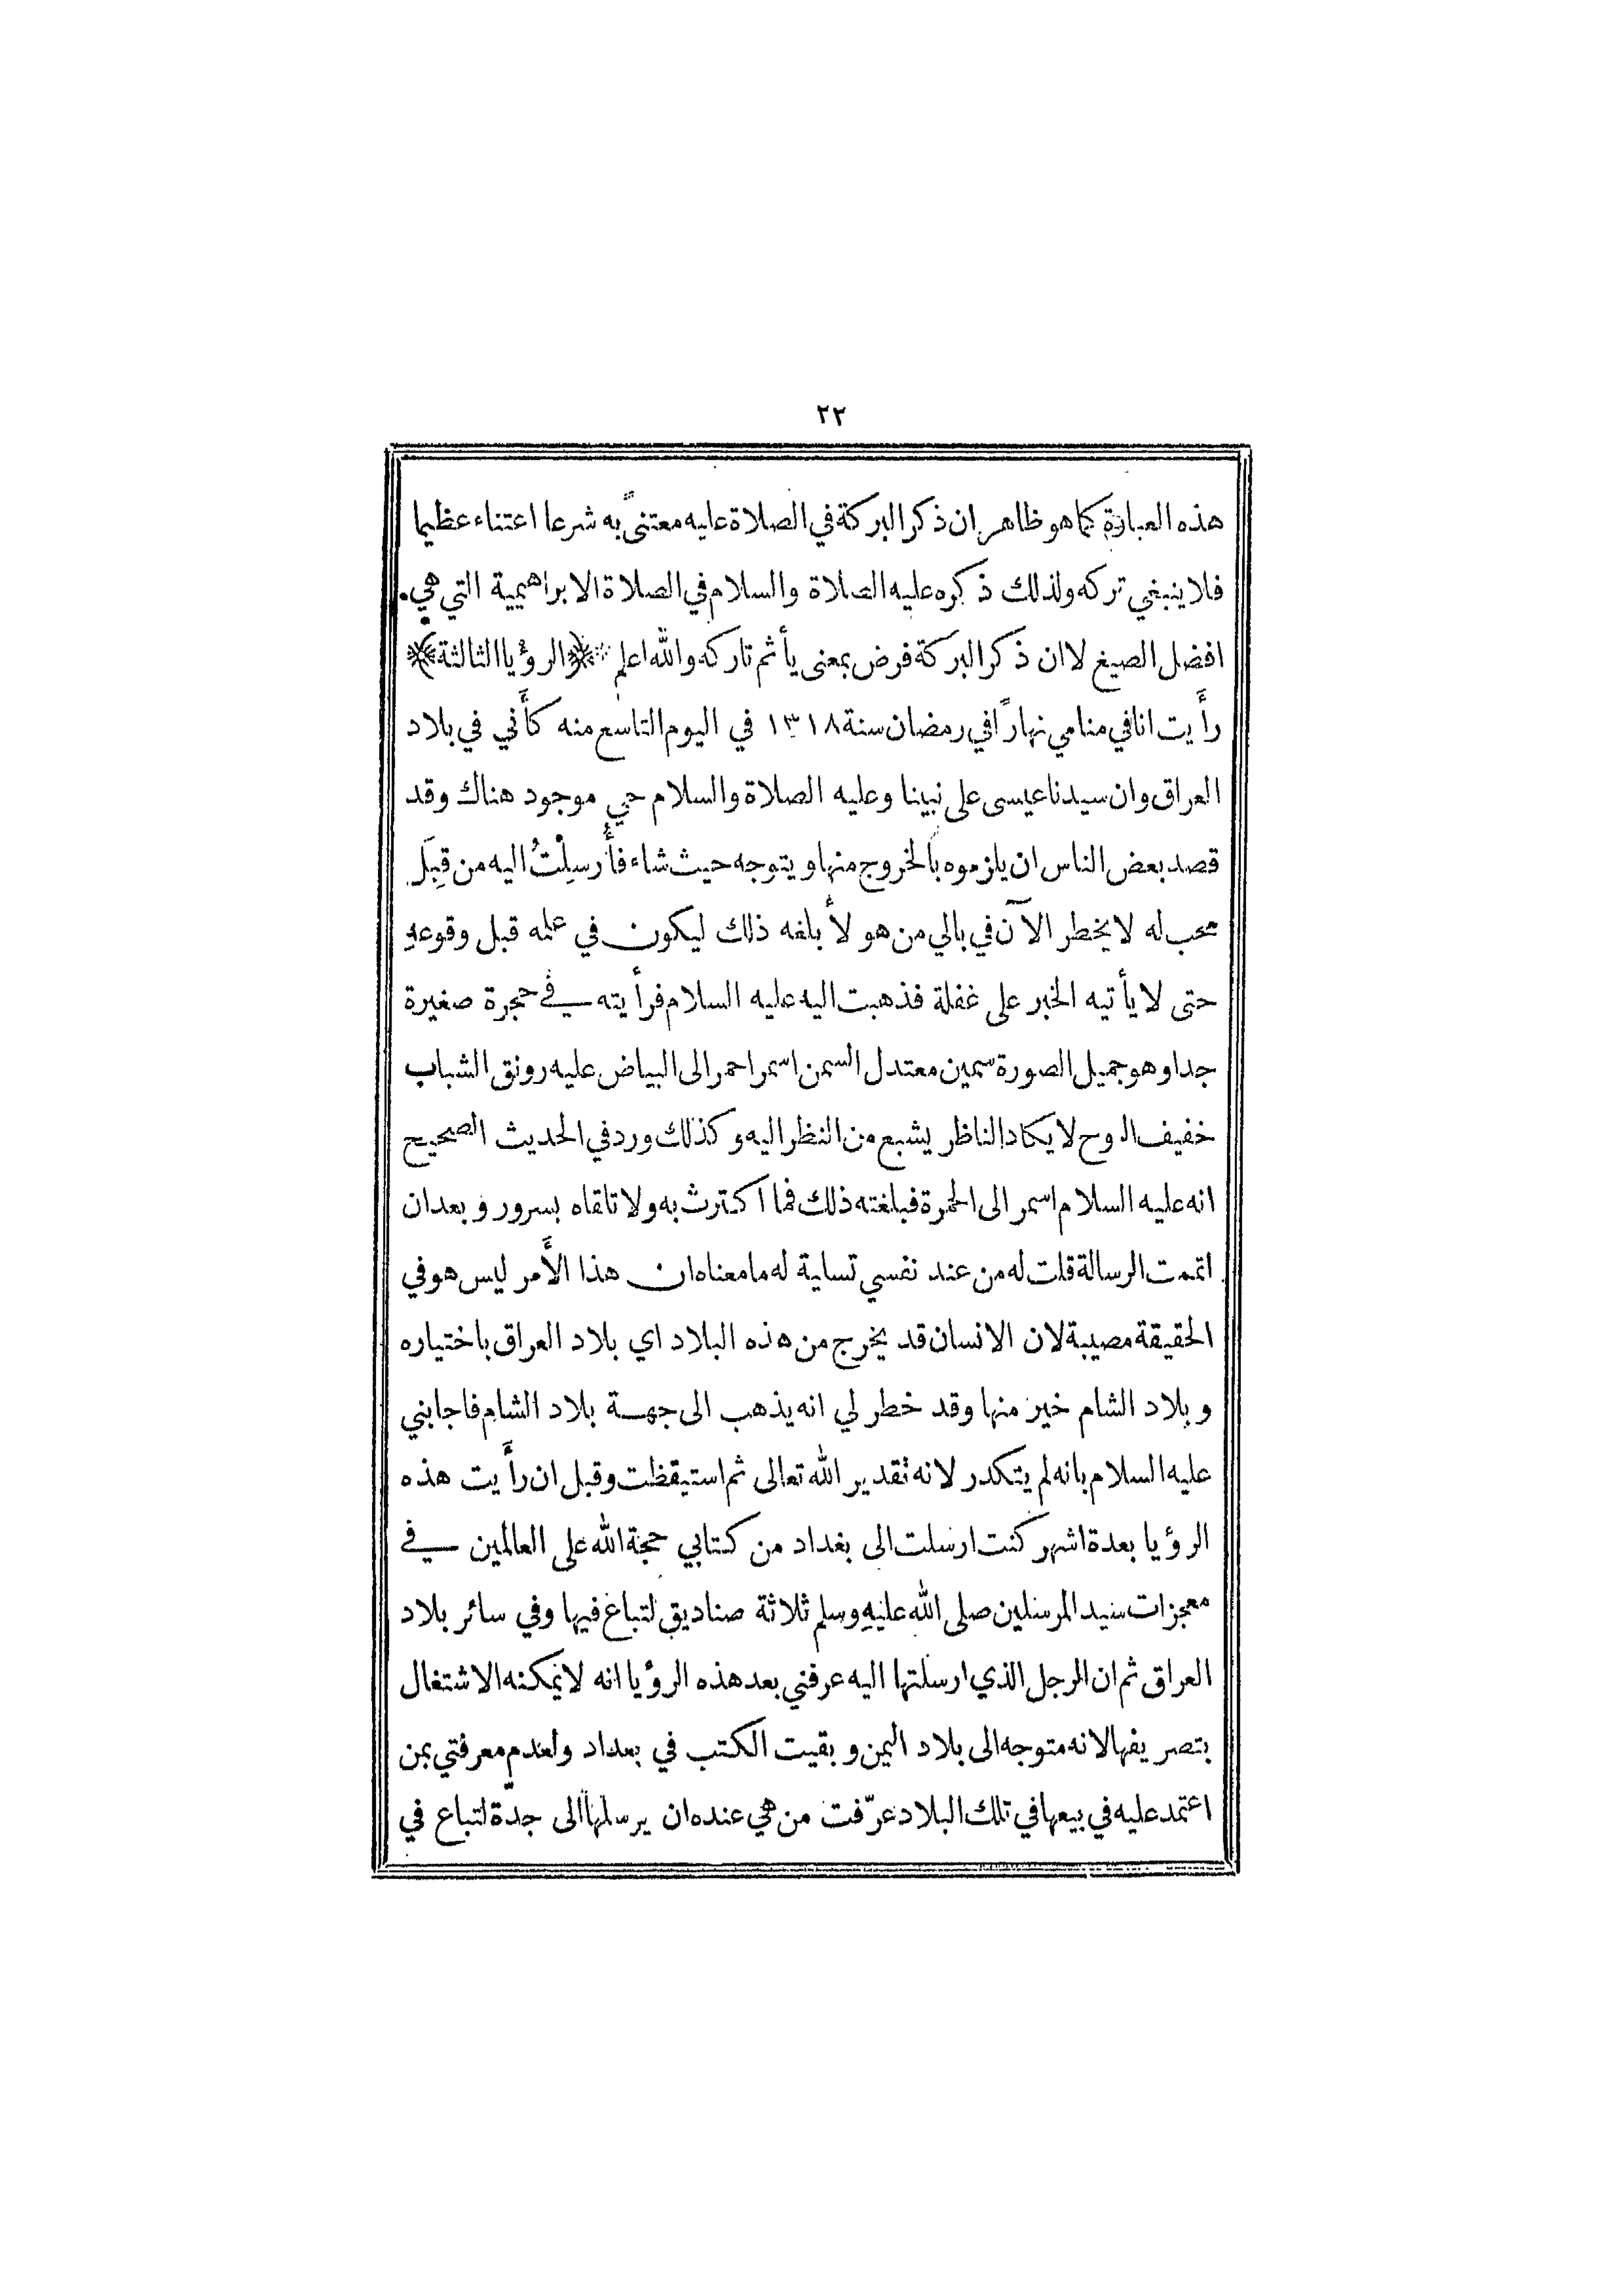 ٢٢
هذه العبارة كما هو ظاهر ان ذكر البركة في الصلاة عليه معتنىً به شرعا اعتناء عظيما
فلا ينبغي تركه ولذلك ذكره عليه الصلاة والسلام في الصلاة الابراهيمية التي هي
افضل الصيغ لا ان ذكر البركة فرض بمعنى يأثم تاركه والله اعلم ﴿الرؤيا الثالثة﴾
رأَيت انا في منامي نهارًا في رمضان سنة ١٣١٨ في اليوم التاسع منه كأَني في بلاد
العراق وان سيدنا عيسى على نبينا وعليه الصلاة والسلام حي موجود هناك وقد
قصد بعض الناس ان يلزموه بالخروج منها ويتوجه حيث شاء فأُرسِلْتُ اليه من قِبَل
محب له لا يخطر الآن في بالي من هو لأبلغه ذلك ليكون في علمه قبل وقوعهِ
حتى لا يأتيه الخبر على غفلة فذهبت اليه عليه السلام فرأيته في حجرة صغيرة
جدا وهو جميل الصورة سمين معتدل السمن اسمر احمر الى البياض عليه رونق الشباب
خفيف الروح لا يكاد الناظر يشبع من النظر اليه وكذلك ورد في الحديث الصحيح
انه عليه السلام اسمر الى الحمرة فبلغته ذلك فما اكترث به ولا تلقاه بسرور وبعد ان
اتممت الرسالة قلت له من عند نفسي تسلية له ما معناه ان هذا الأَمر ليس هو في
الحقيقة مصيبة لان الانسان قد يخرج من هذه البلاد اي بلاد العراق باختياره
وبلاد الشام خير منها وقد خطر لي انه يذهب الى جهة بلاد الشام فاجابني
عليه السلام بانه لم يتكدر لانه تقدير الله تعالى ثم استيقظت وقبل ان رأَيت هذه
الرؤيا بعدة اشهر كنت ارسلت الى بغداد من كتابي حجة الله على العالمين في
معجزات سيد المرسلين صلى الله عليهِ وسلم ثلاثة صناديق لتباع فيها وفي سائر بلاد
العراق ثم ان الرجل الذي ارسلتها اليه عرفني بعد هذه الرؤيا انه لا يمكنه الاشتغال
بتصريفها لانه متوجه الى بلاد اليمن وبقيت الكتب في بغداد ولعدم معرفتي بمن
اعتمد عليه في بيعها في تلك البلاد عرّفت من هي عنده ان يرسلها الى جدّة لتباع في